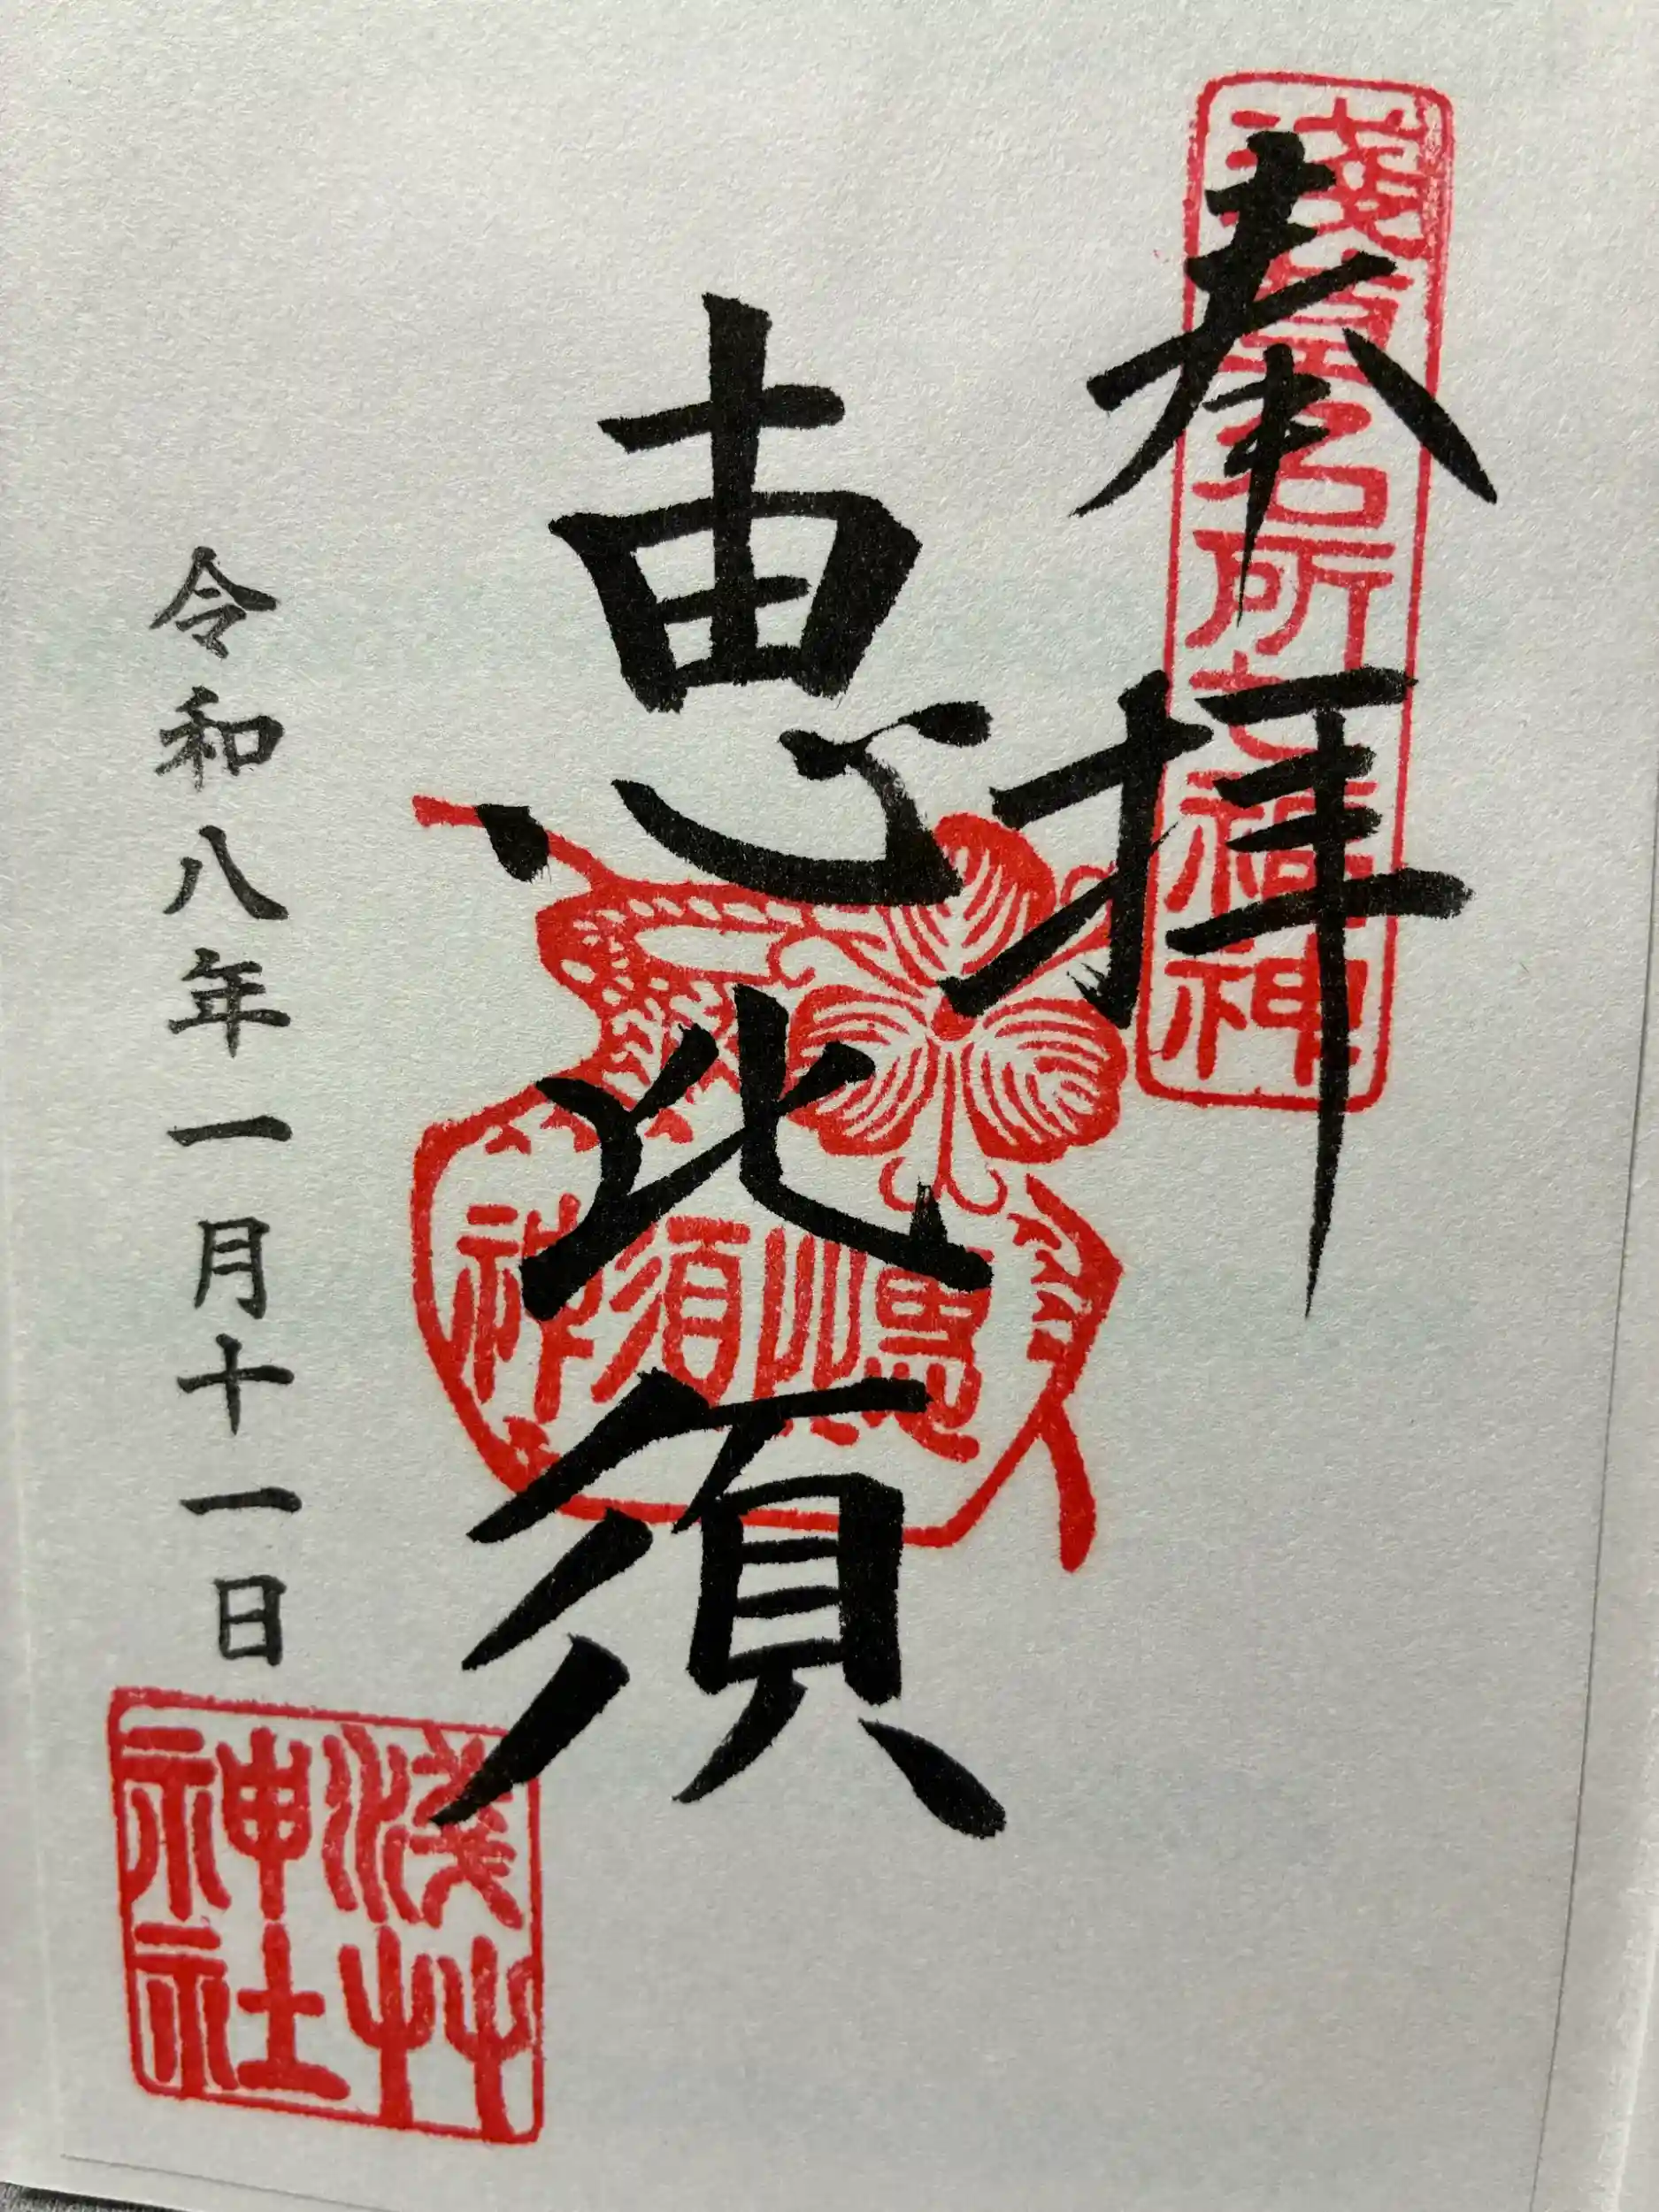 奉拝
浅草名所七福神
恵比須
恵比須神
令和八年一月十一日
浅草神社